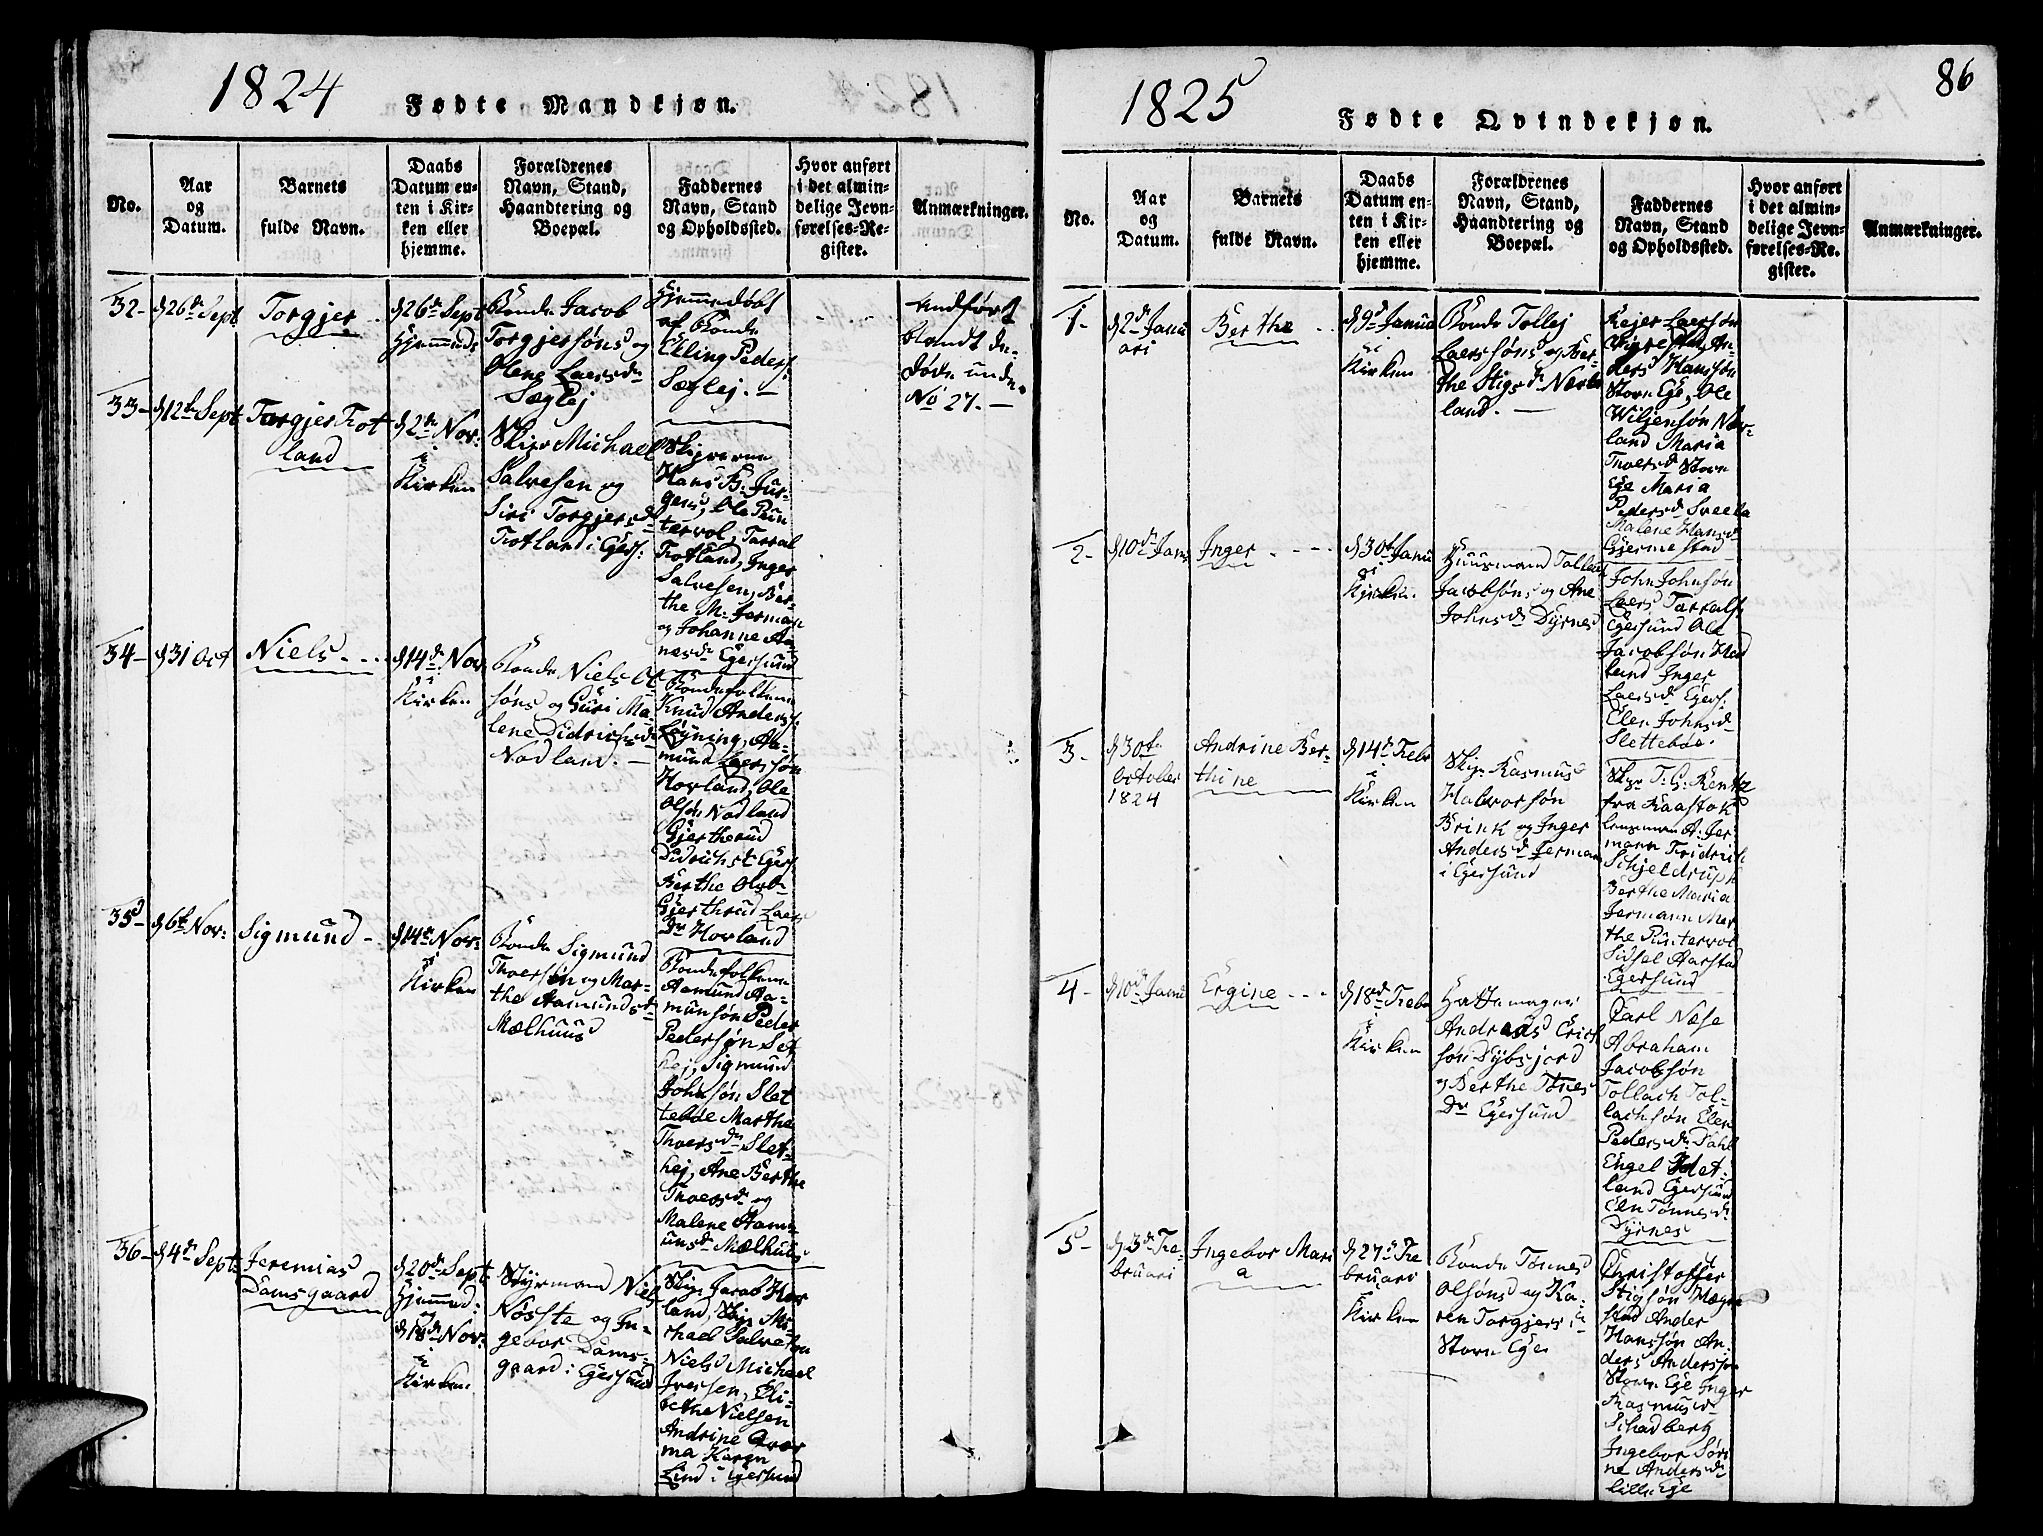 1824
Fødte Mandkjøn.
No.
Aar
og
Datum.
Barnets
fulde Navn.
Daabs
Datum en-
ten i Kir-
ken eller
hjemme.
Forældrenes
Navn, Stand,
Haandtering og
Boepæl.
Faddernes
Navn, Stand
og Opholdssted.
Hvor anført
i det almin-
delige Jevn-
førelses-Re-
gister.
Anmærkninger.
32-
d 26de Sept
Torgjer
d 26de Sept
Hjemmed:
Bonde Jacob
Torgjersøns og
Olene Laersdr
Sæglej
Hjemmedøbt
af Bonde
Elling Peders:
Sæglej. -
Andført
blandt de
døde under
No 27. -
33-
d 12te Sept
Torgjer Trot
land
d 2de Nov:
i
Kirken
Skipr Michael
Salvesen og
Siri Torgjersd
Trotland i Egers:
Skiprerne
Hans B: Jür-
gens, Ole Pun
tervol, Tarral
Trotland, Inger
Salvesen, Ber-
the M. Jerman
og Johanne Aa-
nesdr Egersund
34-
d 31 Oct
Niels
d 14de Nov
i
Kirken
Bonde Niels Ol
søns og Guri Ma-
lene Didrichsd
Nodland. -
Bondefolkene
Knud Anders:
Løyning, Aa-
mund Laerssøn
Hovland, Ole
Olsøn Nodland
Gjertherud
Didrichst Egers
Berthe Olsd
Gjerthrud Laers
Dr Hovland
35
d 6te Nov:
Sigmund
d 14de Nov:
i
Kirken
Bonde Sigmund
Thoersen og Mar-
the Aamundsd
Mælhuus
Bondefolkene
Aamund Aa-
munsøn Peder
Pedersøn Slet
hej, Sigmund
Johnsøn Slet
tebøe Marthe
Thoersdr Slet-
hej, Ane Berthe
Thoersdr og
Malene Aamu
unsdr Mælhuus
36-
d 4de Sept
Jeremias
Damsgaard
d 20de Sept
Hjemmed:
og
d 18de Nov:
i
Kirken
Styrmand Niels
Nøsste og In-
gebor Dams-
gaard i Egersund
Skip. Jacob Hov
land, Skip. Mi-
chael Salvesen
Niels Michael
Iversen, Eli-
bethe Nielsen
Andrine Qvær
ma Karen
Lind i Egersund
1825
Fødte Qvindekjøn.
86
No.
Aar
og
Datum.
Barnets
fulde Navn.
Daabs
Datum en-
ten i Kir-
ken eller
hjemme.
Forældrenes
Navn, Stand,
Haandtering og
Boepæl.
Faddernes
Navn, Stand
og Opholdssted.
Hvor anført
i det almin-
delige Jevn-
førelses-Re-
gister.
Anmærkninger.
1-
d 2d Janu
ari
Berthe
d 9d Janua
i
Kirken
Bonde Tollej
Laerssøns og Ber-
the Stigsdr Nord
land. -
Rejer Laersøn
Vigrestad, An-
ders Hansøn
Store Ege, Ole
Wiljensøn Nor-
land Maria
Thoersdr Store
Ege Maria
Pedersdr Sveela
Malene Hansdr
Gjermestad
2-
d 10de Janu
Inger
d 30te Janu
i
Kirken.
Huusmand Tollev
Jacobsøns og Ane
Johnsdr Dyrnes
John Johnsøn
Laers Tarrals:
Egersund Ole
Jacobsøn Had
land Inger
Laersdr Egers:
Elen Johnsdr
Slettebøe.
3-
d 30te
October
1824
Andrine Ber-
thine
d 14de Febr
i
Kirken
Skip. Rasmus
Halvorsøn
Brink og Inger
Andersdr Jerman
i Egersund
Skpr T: G: Rentz
fra Raastok
Lensmann A: Jer
mann Fridrich
Schjeldrup
Berthe Maria
Jermann Mar
the Puntervol
Sidsel Aarstad
Egersund
4-
d 10de Janu
Ergine
d 18de Febr
i
Kirken
Hattemager
Andreas Erich
søn Dybsjord
og Berthe Tønes
Dr Egersund
Carl Næse
Abraham
Jacobsøn
Tollach Tol-
lachsøn Elen
Pedersdr Dahl
Engel Idet-
land Egersund
Elen Tønnesdr
Dyrnes
5-
d 3de Fe-
bruari
Ingebor Mari
a
d 27de Fe
bruari
i
Kirken
Bonde Tønnes
Olsøns og Ka-
ren Torgjers:
Store Ege
Christoffer
Stigsøn Mægre
stad Ander
Hanssøn An-
ders Andersøn
Store Ege Inger
Rasmusdr
Schadberg
Ingebor Søri
ne Andersdr
Lille Ege